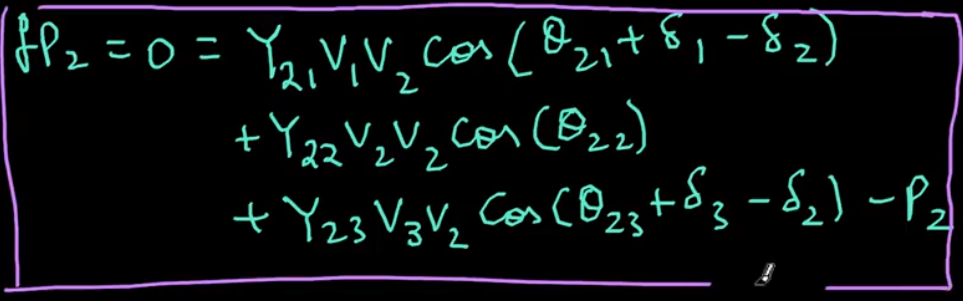 fP₂ = 0 = Y₂₁V₁V₂ Cos(θ₂₁+δ₁-δ₂)
+Y₂₂V₂V₂ Cos(θ₂₂)
+Y₂₃V₃V₂ Cos(θ₂₃+δ₃-δ₂)-P₂